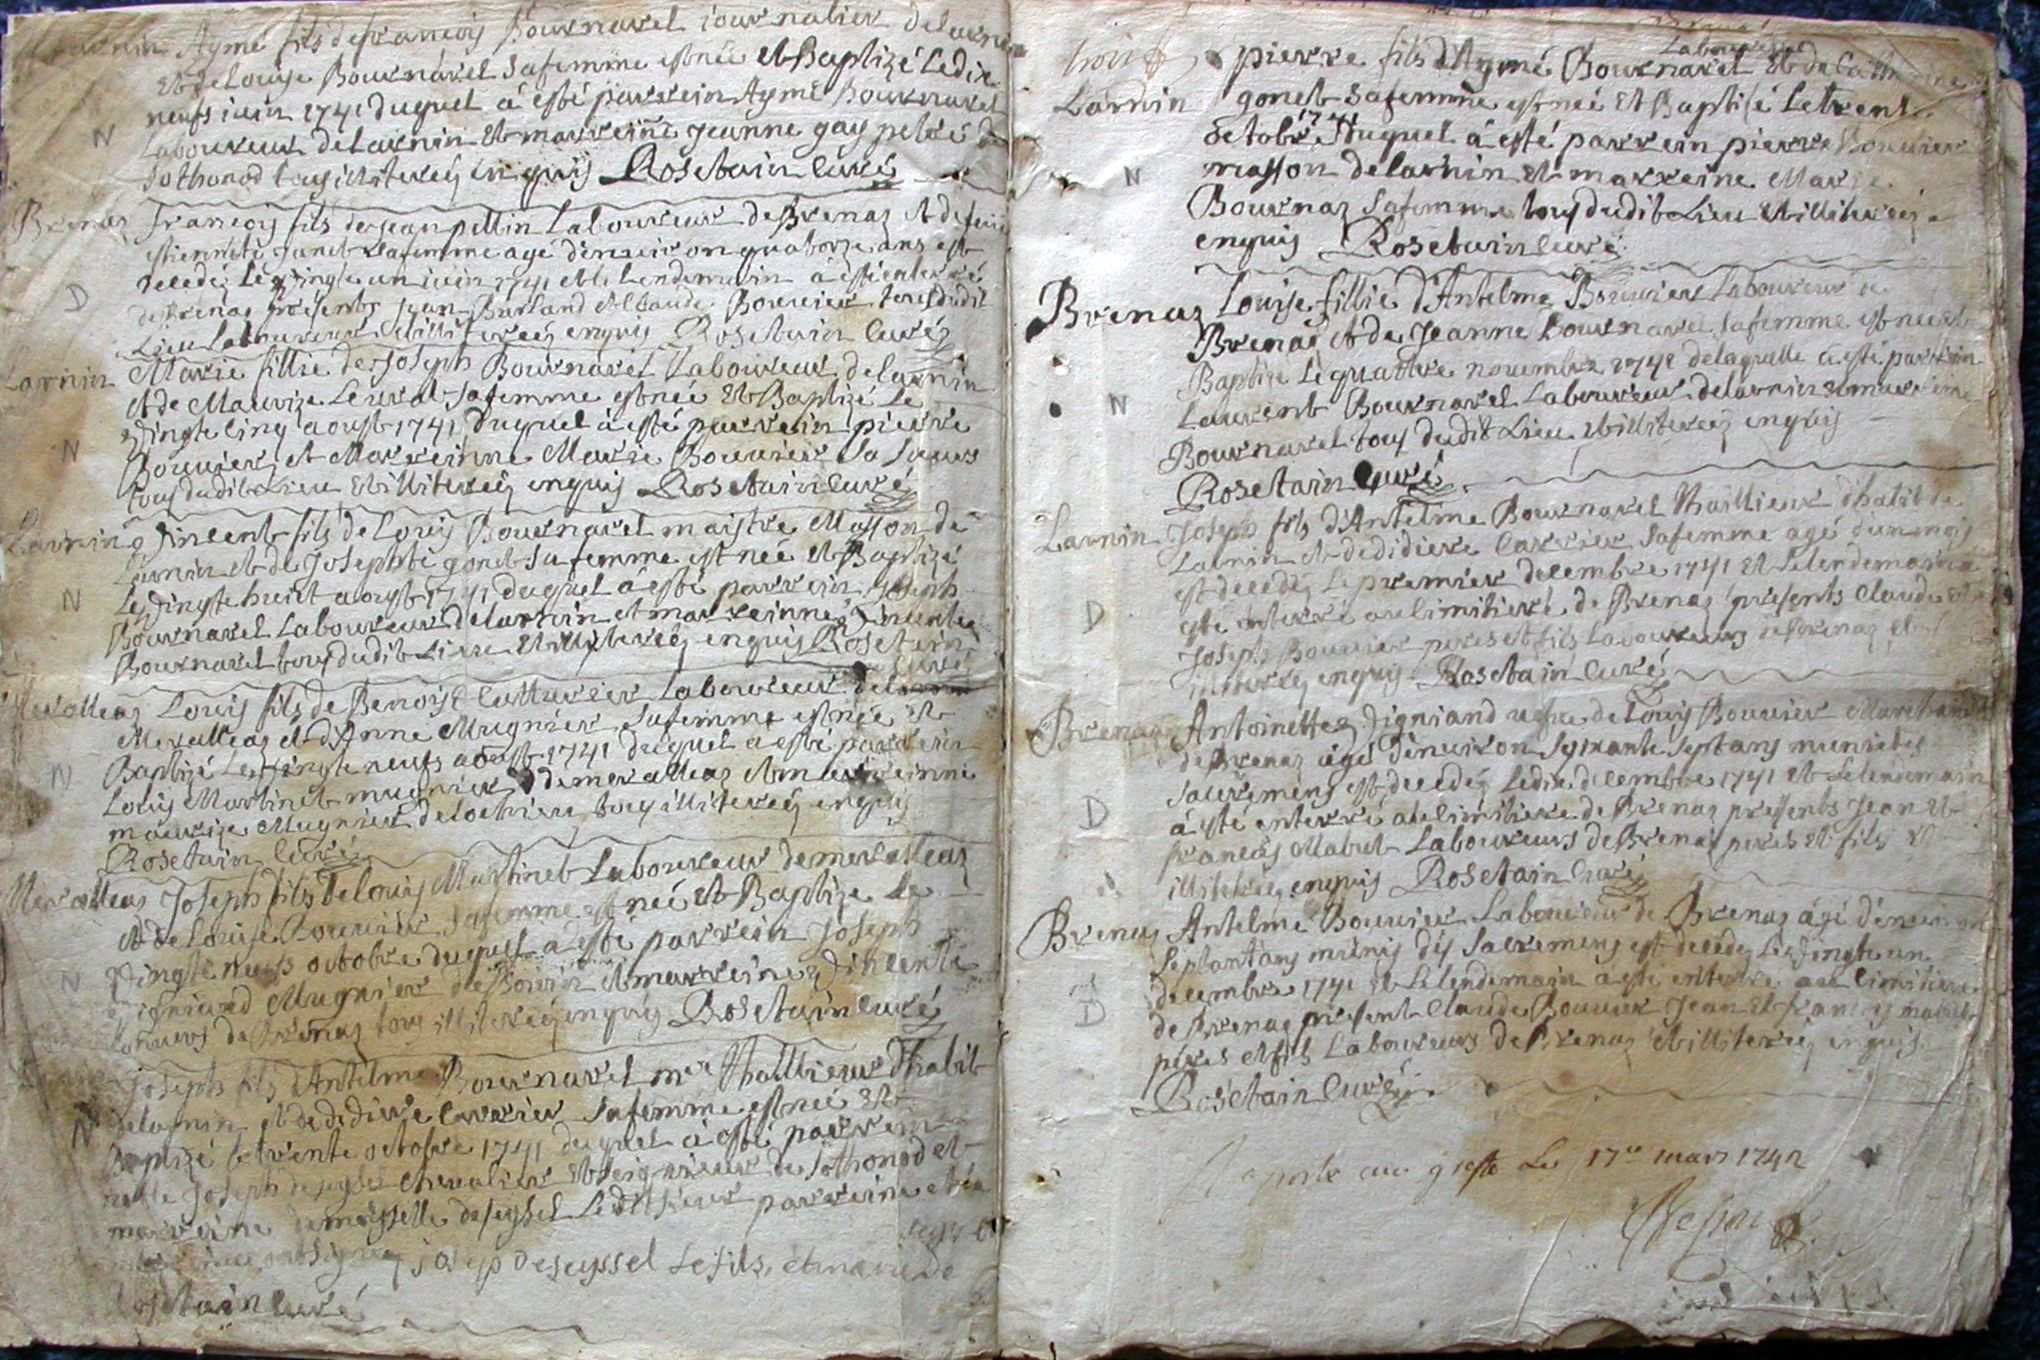 Aymé fils de francois Bournarel iournalier de larnin
Et de Louise Bournarel Safemme est née Et Baptizé Le dix
neufs iuin 1741 duquel á esté parrein Aymé Bournarel
N
Laboureur de Larnin Et marreinne Jeanne gay
Sothonod tous illiterés enquis Rosetain Curé
Brenaz francois fils de jean pellin Laboureur de Brenaz Et de feüe
estiennete Safemme agé d'enuiron quatorze ans est
decedez Le vingte un iuin 1741 et le Lendemain á esté enterré
D
de Brenaz presents jean Burland et Claude Bouuier tous dudit
Lieu Laboureurs illiterés enquis Rosetain Curé
Larnin Marie fillie de Joseph Bournarel Laboureur de larnin
et de Maurize Safemme est née Et Baptizé Le
vingte cinq aoust 1741 duquel á esté parrein pierre
N
Bouuier et Marreinne Marie Bouuier Sa
tous dudit Lieu Et illiterés enquis Rosetain Curé
Larnin vincent fils de Louis Bournarel maistre Masson de
Larnin et de Josephte gonet Sa femme est née et Baptizé
Le vingte huict aoust 1741 duquel á esté parrein Joseph
N
Bournarel Laboureur de larnin et marreinne vincente
Bournarel tous dudit Lieu Et illiterés enquis Rosetain
Curé
Meralleaz Louis fils de Benoist Laboureur de
Meralleaz et d'Anne Mugnier Safemme est née Et
Baptizé Le vingte neufs aoust 1741 duquel a esté parrein
N
Louis Martinet mugnier de meralleaz et marreinne
maurize Mugnier de tous illiterés enquis
Rosetain Curé
Meralleaz Joseph fils de louis Martinet Laboureur de meralleaz
et de Louise Bouuier Safemme est née Et Baptize Le
vingte neufs octobre duquel a esté parrein Joseph
N
Mugnier et marreine vincente
de Brenaz tous illiterés enquis Rosetain Curé
Joseph fils d'Antelme Bournarel mre thallieur d'habit
de larnin et de didiere Carrier Safemme est née Et
N
Baptizé le trente octobre 1741 duquel á esté parrein
noble Joseph de seyssel Chevalier Et seigneur de Sothonod et
marreine demoyselle de seyssel Ledit sieur parreine et la
josep deseyssel Lefils,
Rosetain Curé
Larnin
pierre fils d'Aymé Bournarel Laboureur Et de Catherine
gonet Safemme est née Et Baptisé Le trente
octobre 1741 duquel á esté parrein pierre Bouuier
N
masson de larnin Et marreine Marie
Bournaz Safemme tous dudit Lieu Et illiterés
enquis Rosetain Curé
Brenaz Louise fillie d'Antelme Bouuier Laboureur de
Brenaz et de Jeanne Bournarel Safemme est née et
Baptize Le quattre nouembre 1741 delaquelle a esté parrein
N
Laurent Bournarel Laboureur de larnin et marreine
Bournarel tous dudit Lieu Et illiterés enquis
Rosetain Curé
Larnin Joseph fils d'Antelme Bournarel thaillieur d'habit de
Larnin et de didiere Carrier Safemme agé d'un mois
est decedez Le premier decembre 1741 Et Le lendemain á
D
esté enterré au Cimitiere de Brenaz presents Claude Et
Joseph Bouuier peres et fils Laboureurs de Brenaz Et
illiterés enquis Rosetain Curé
Brenaz Antoinette vigniand uefue de Louis Bouuier Marchand
de Brenaz agé d'enuiron Soixante Sept ans munie des
Sacremens est decedez Le dix decembre 1741 et Le lendemain
D
á esté enterré au Cimitiere de Brenaz presents Jean Et
francois Mabut Laboureurs de Brenaz peres et fils Et
illiterés enquis Rosetain Curé
Brenaz Antelme Bouuier Laboureur de Brenaz ági d'enuiron
Septant ans munis dis Sacremens est decedez Le vingte un
decembre 1741 et Le lendemain a esté enterré au Cimitiere
D
de Brenaz present Claude Bouuier Jean et francois mabut
péres et fils Laboureurs de Brenaz et illiterés enquis
Rosetain Curé
aporté au greffe Le 17e mars 1742